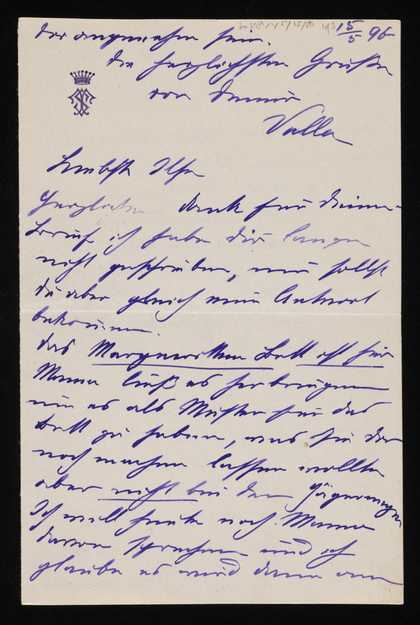 15/5 96
der angenehm sein.
die herzlichsten Grüße
von Deiner
Valla
Liebste Ilse
Herzlichen Dank für Deinen
Brief ich habe Dir lange
nicht geschrieben, nun sollst
du aber gleich meine Antwort
bekommen.
Das Margueritten Bett ist für
Mama ließ es herbringen
um es als Muster für das
Bett zu haben, was sie der
noch machen lassen wollte
aber nicht bei den
Ich will heute noch Mama
davon sprechen und ich
glaube es wird dann